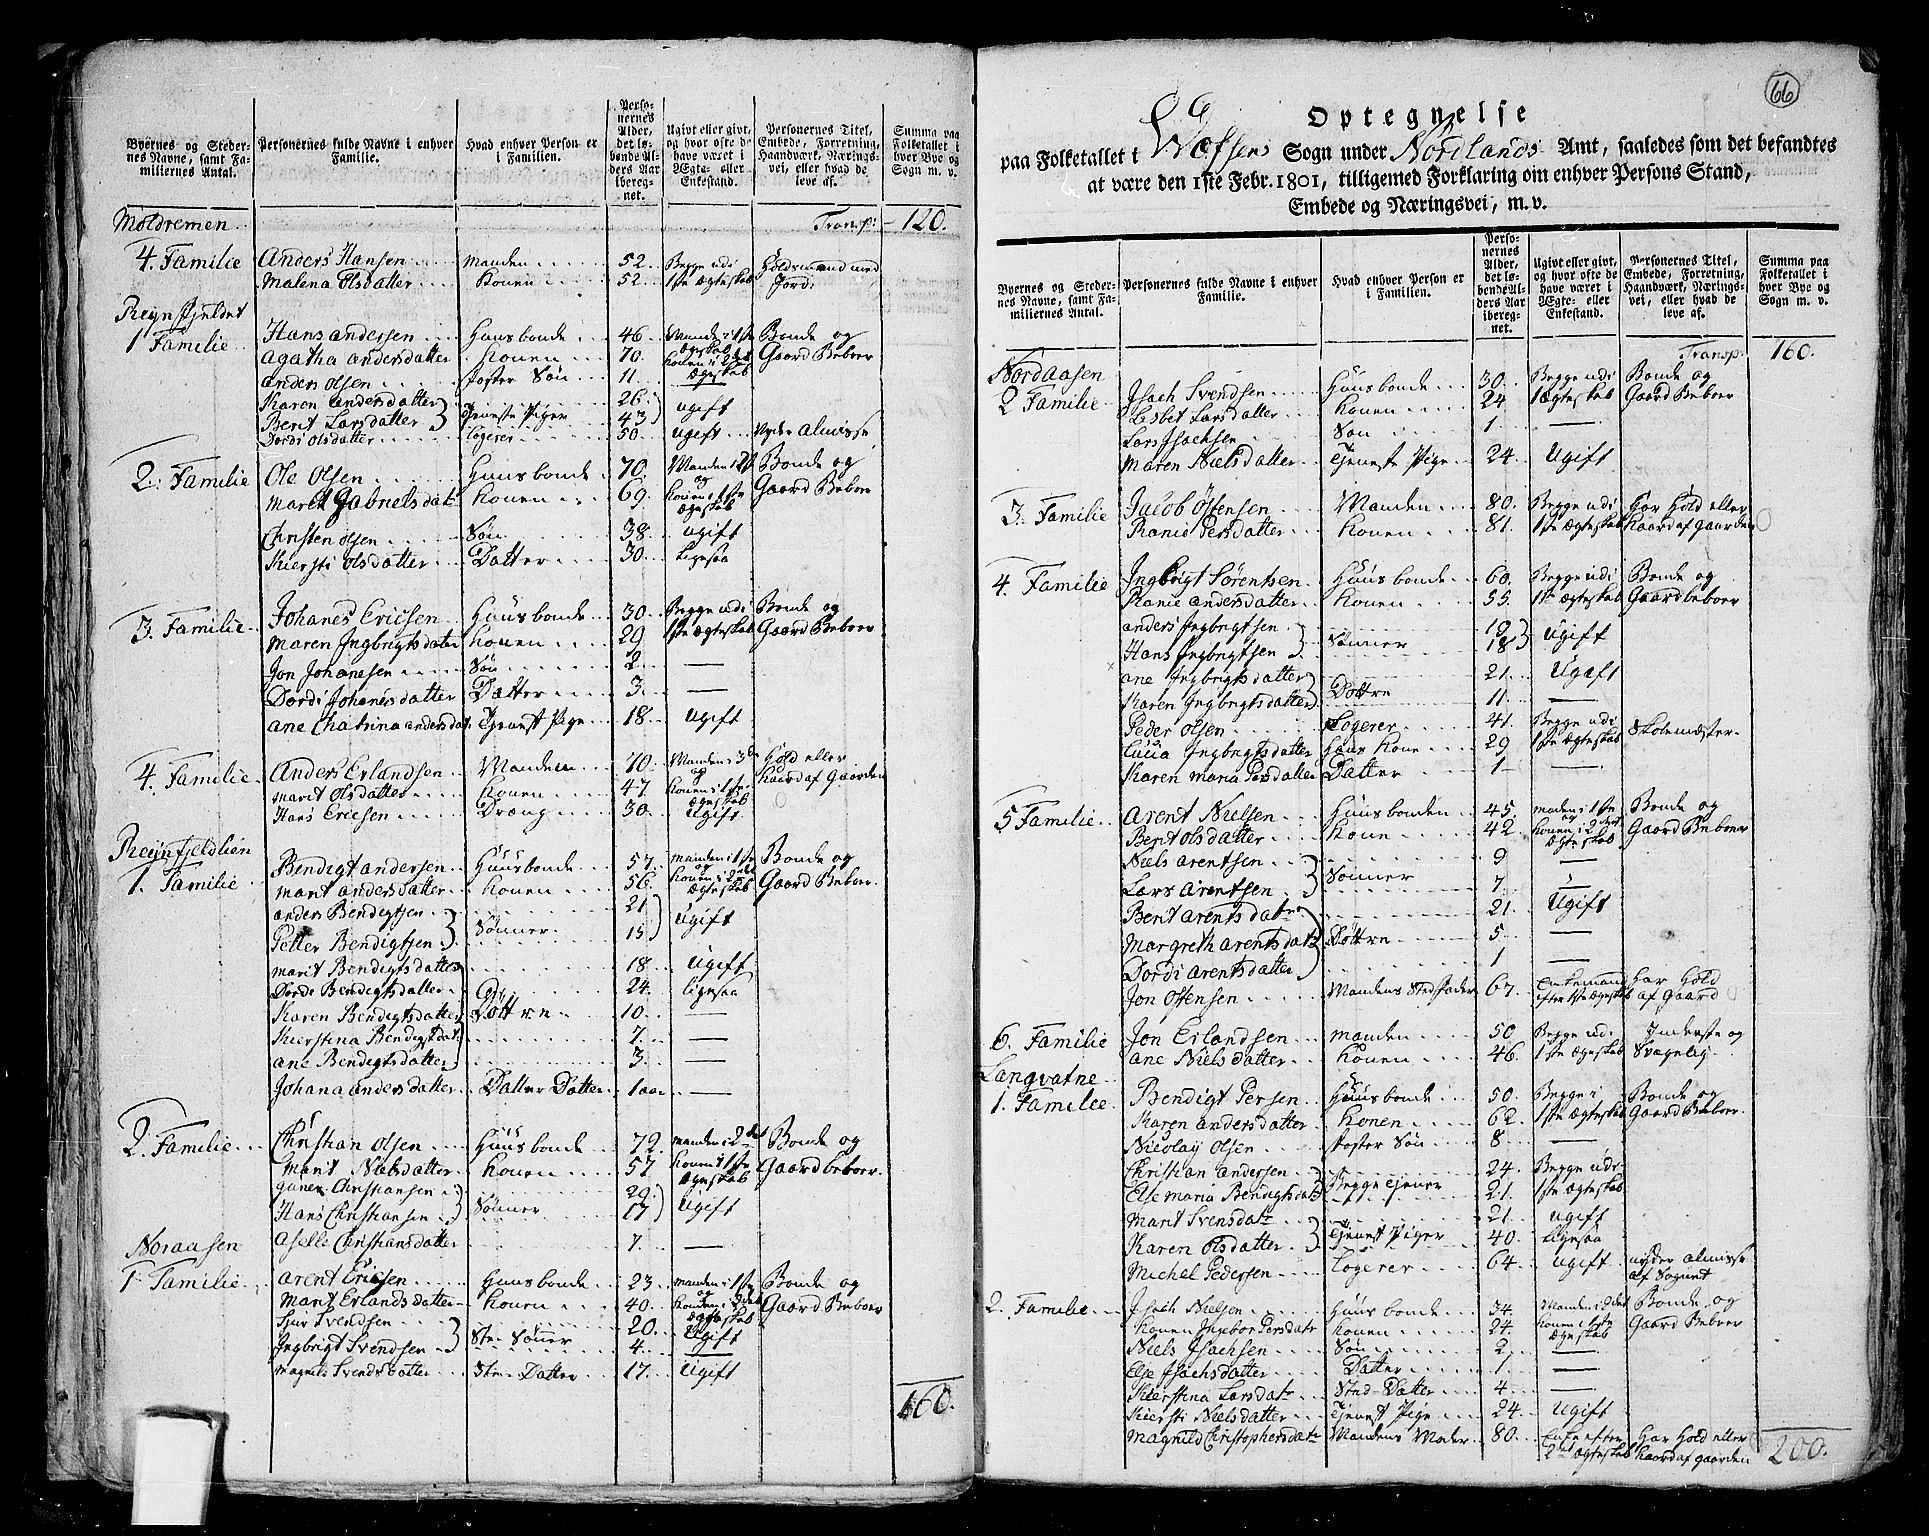 Byernes og Stedernes Navne, samt Familiernes Antal.
Personernes fulde Navne i enhver Familie.
Hvad enhver Person er i Familien.
Personernes Alder, det løbende Alders Aar iberegnet.
Ugivt eller givt, og hvor ofte de have været i Ægte- eller Enkestand.
Personernes Titel, Embede, Forretning, Haandværk, Nærings-vei, eller hvad de leve af.
Summa paa Folketallet i hver Bye og Sogn m. v.
Moldremen Transp: 120.
4. Familie Anders Hansen manden 52 Begge udi Holdsmand med
Malena Olsdatter Konen 52 1ste ægteskab Jord
Reynfjeldet
1 Familie Hans andersen Huusbonde 46 Manden i 1ste Bonde og
agatha andersdatter Konen 70. konen i 2det ægteskab Gaard Beboer
anders olsen foster Søn 11
Karen andersdatter 26
Berit Larsdatter Tjeneste Piger 43 ugift
Dordi olsdatter Logerer 50 ugift Nyder Almisse
2. Familie Ole Olsen Huusbonde 70. Manden i 2det Bonde og
Marit Gabrielsdatr Konen 69. og konen i 1ste ægteskab Gaard Beboer
Christen olsen Søn 38 ugift
Kiersti olsdatter Datter 30. Ligesaa
3. Familie Johanes Ericsen Huusbonde 30. Begge udi Bonde og
maren Ingbrigtsdater Konen 29 1ste ægteskab Gaard Beboer
Jon Johanesen Søn 2
Dordi Johanesdatter Datter 3.
ane Chatrina andersdat. Tjenest Pige 18 ugift
4. Familie Anders Erlandsen Manden 70. Manden i 3de Hold eller
marit Olsdatter Konen 47 og konen i 1ste ægeskab Kaar af Gaarden
Hans Ericsen Dræng 30. Ugift
Reynfjeldlien
1. Familie Bendigt andersen Huusbonde 57. manden i 1ste Bonde og
marit andersdatter Konen 56. og konen i 2det ægteskab Gaard Beboer
anders Bendigtsen 21
Petter Bendigtsen Sönner 15 Ugift
marit Bendigtsdatter 18 Ugift
Dorde Bendigtsdatter 24. ligesaa
Karen Bendigtsdatter Döttre 10.
Kierstina Bendigtsdat. 7.
ane Bendigtsdatter 3.
Johana andersdatter Datter Datter 1 aar
2. Familie Christian olsen Huusbonde 72. manden i 2det Bonde og
Marit Nielsdatter Konen 57 Konen i 1ste ægeskab Gaard beboer
Christiansen 29
Hans Christiansen Sönner 17 Ugift
aselle Christiansdatter 7.
Noraasen
1. Familie arent Ericsen Huusbonde 23. manden i 1ste Bonde og
Marit Erlandsdatter Konen 40. og Konden i 2det ægteskab Gaard Beboer
Sjur Svendsen 20
Ingbrigt Svendsen Sted Sönner 4. Ugift
magnild Svendsdatter Sted Datter 17. Ugift
160.
66
Optegnelse
paa Folketallet i Wefsens Sogn under Nordlands Amt, saaledes som det befandtes
at være den 1ste Febr. 1801, tilligemed Forklaring om enhver Persons Stand,
Embede og Næringsvei, m. v.
Byernes og Stedernes Navne, samt Familiernes Antal.
Personernes fulde Navne i enhver Familie.
Hvad enhver Person er i Familien.
Personernes Alder, det løbende Alders Aar iberegnet.
Ugivt eller givt, og hvor ofte de have været i Ægte- eller Enkestand.
Personernes Titel, Embede, Forretning, Haandværk, Nærings-vei, eller hvad de leve af.
Summa paa Folketallet i hver Bye og Sogn m. v.
Nordaasen Transp: 160.
2 Familie Isach Svendsen Huusbonde 30. Begge udi Bonde og
Lisbet Larsdatter Konen 24 1ægteskab Gaard Beboer
Lars Isachsen Søn 1
maren Nielsdatter Tjeneste Pige 24. Ugift
3. Familie Jacob Östensen Manden 80. Begge udi har Hold eller
Ranie Persdatter Konen 81. 1ste ægteskab Kaard af Gaarden
4 Familie Ingbrigt Sörensen Huusbonde 60. Begge udi Bonde og
Ranie andersdatter Konen 55. 1ste ægteskab Gaardbeboer
anders Ingbrigtsen 19
Hans Ingbrigtsen Sönner 18 Ugift
ane Ingbrigtsdatter 21. Ugift
Karen Ingbrigtsdatter Dottre 11
Peder olsen Logerer 41. Begge udi
Lucia Ingbrigtsdatter Hans Kone 29 1ste ægteskab Skolemæster
Karen maria Persdatter Datter 1
5 Familie Arent Nielsen Huusbonden 45. maden i 1ste Bonde og
Berit olsdatter Kone 42. og konen i 2det ægteskab Gaard Beboer
Niels arentsen 9
Lars arentsen Sönner 7.
Berit arentsdater 21. Ugift
Margreth arentsdatr Döttre 5
Dordi arentsdatter 1
Jon Ostensen Mandens Stedfader 67. Enkemand efter 1ste ægteskab har Hold af Gaard
6. Familie Jon Erlandsen manden 50 Begge udi Inderste og
ane Nielsdatter Konen 46. 1ste ægteskab Svagelig
Langvatne
1. Familie Bendigt Persen Huusbonde 50. Begge i Bonde og
Karen andersdatter Konen 62. 1ste ægteskab Gaard Beboer
Nicolay Olsen foster Søn 8
Christian andersen 24. Begge udi
Else maria Bendigtsdatr Begge tjener 21. 1ste ægteskab
Marit Svensdatr 21 ugift
Karen olsdatter Tjenest Piger 40. Ligesaa
Michel Pedersen Logerer 64 ugift nyder almisse af Sognet
2. Familie Isach Nielsen Huus bonde 34. Manden i 2det Bonde og
Konen Ingebor Persdatr konen 24. konen i 1ste ægteskab Gaard Beboer
Niels Isachsen Søn 2
Else Isachsdatter Datter 1
Kierstina Larsdatr Sted-Datter 4.
Kiersti Nielsdatter Tjenest Pige 24. Ugift
magnild Christophersdatr Mandens Moder 80. Enke efter 2det ægteskab har Hold eller Kaard af gaarden
200.